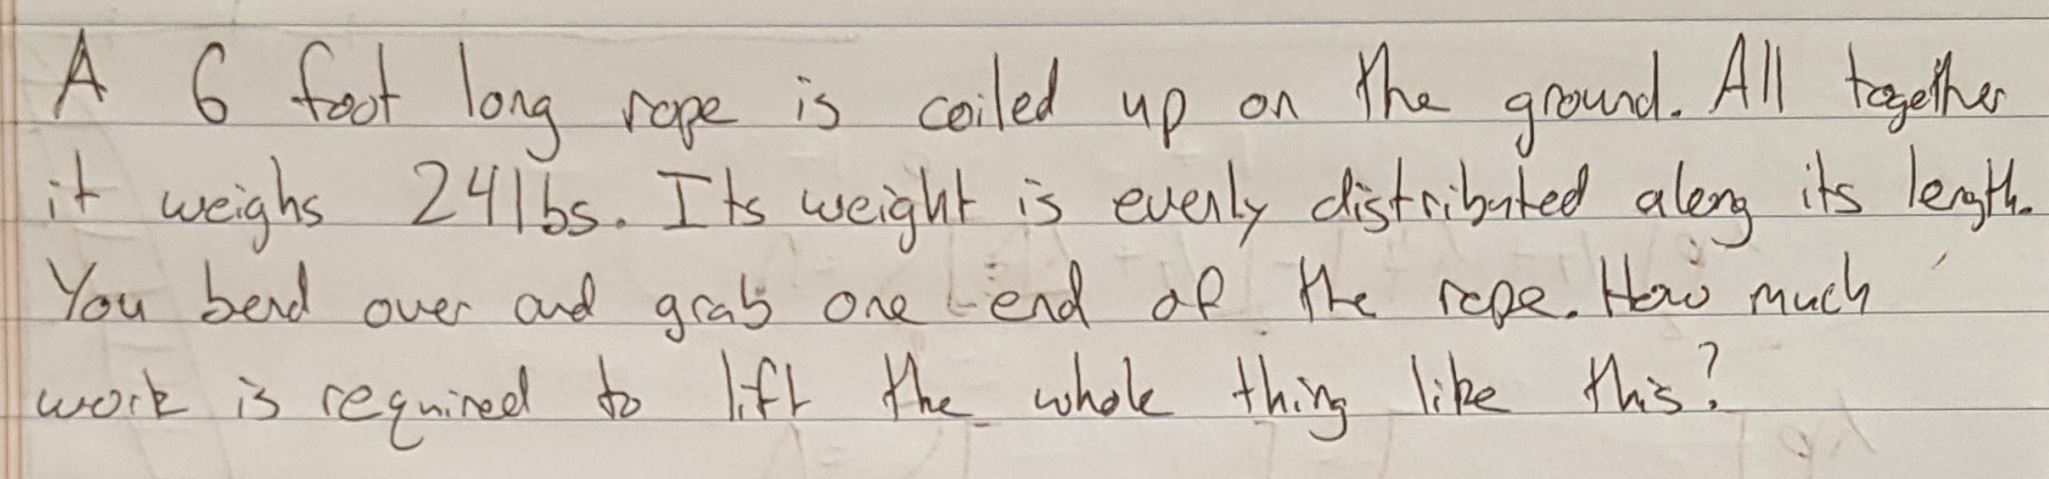 A 6 foot long rope is coiled up on the ground. All together
it weighs 24lbs. Its weight is evenly distributed along its length.
You bend over and grab one end of the rope. How much
work is required to lift the whole thing like this?